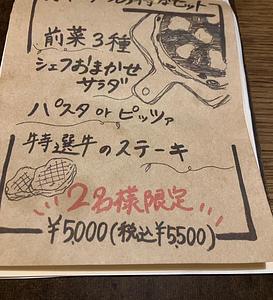 セット
前菜3種
シェフおまかせ
サラダ
パスタ or ピッツァ
特選牛のステーキ
2名様限定
¥5,000(税込¥5500)